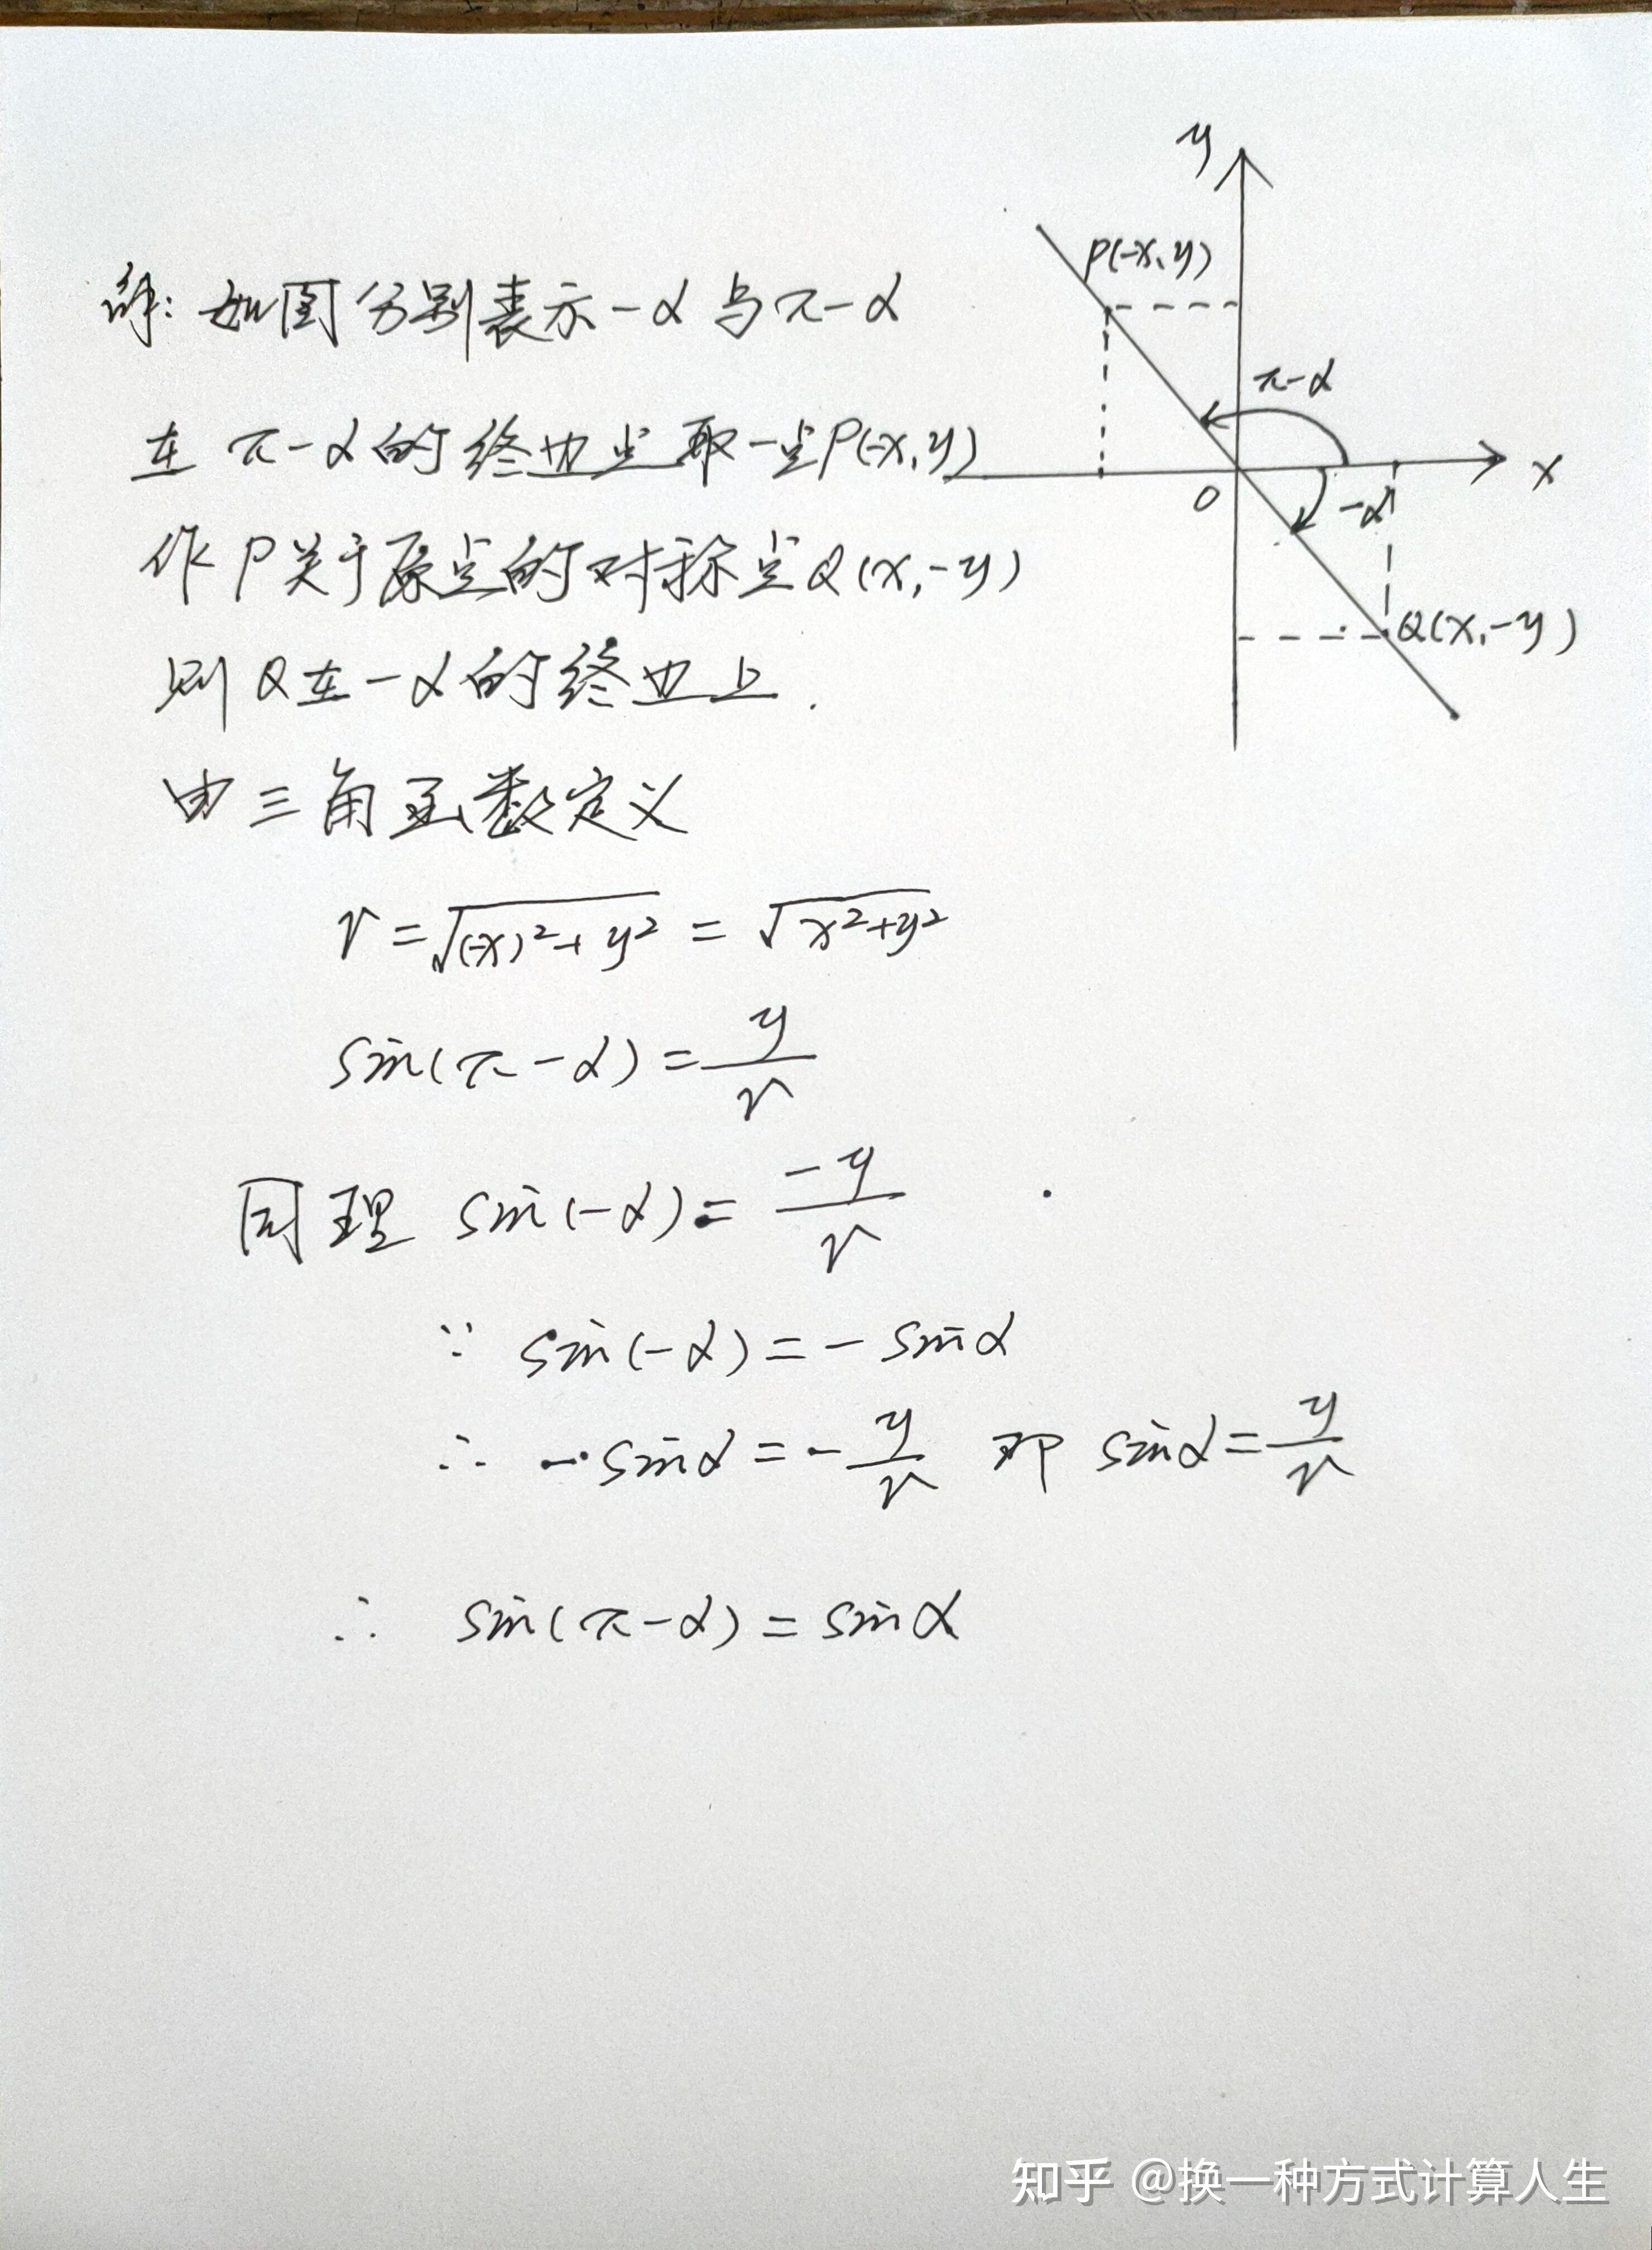 解：如图分别表示-α与π-α
在π-α的终边上取一点P(-x,y)
作P关于原点的对称点Q(x,-y)
则Q在-α的终边上.
由三角函数定义
r=√((-x)²+y²)=√(x²+y²)
sin(π-α)=y/r
同理 sin(-α)=-y/r
∵ sin(-α)=-sinα
∴ -sinα=-y/r 即 sinα=y/r
∴ sin(π-α)=sinα
y
P(-x,y)
π-α
x
O
-α
Q(x,-y)
知乎 @换一种方式计算人生